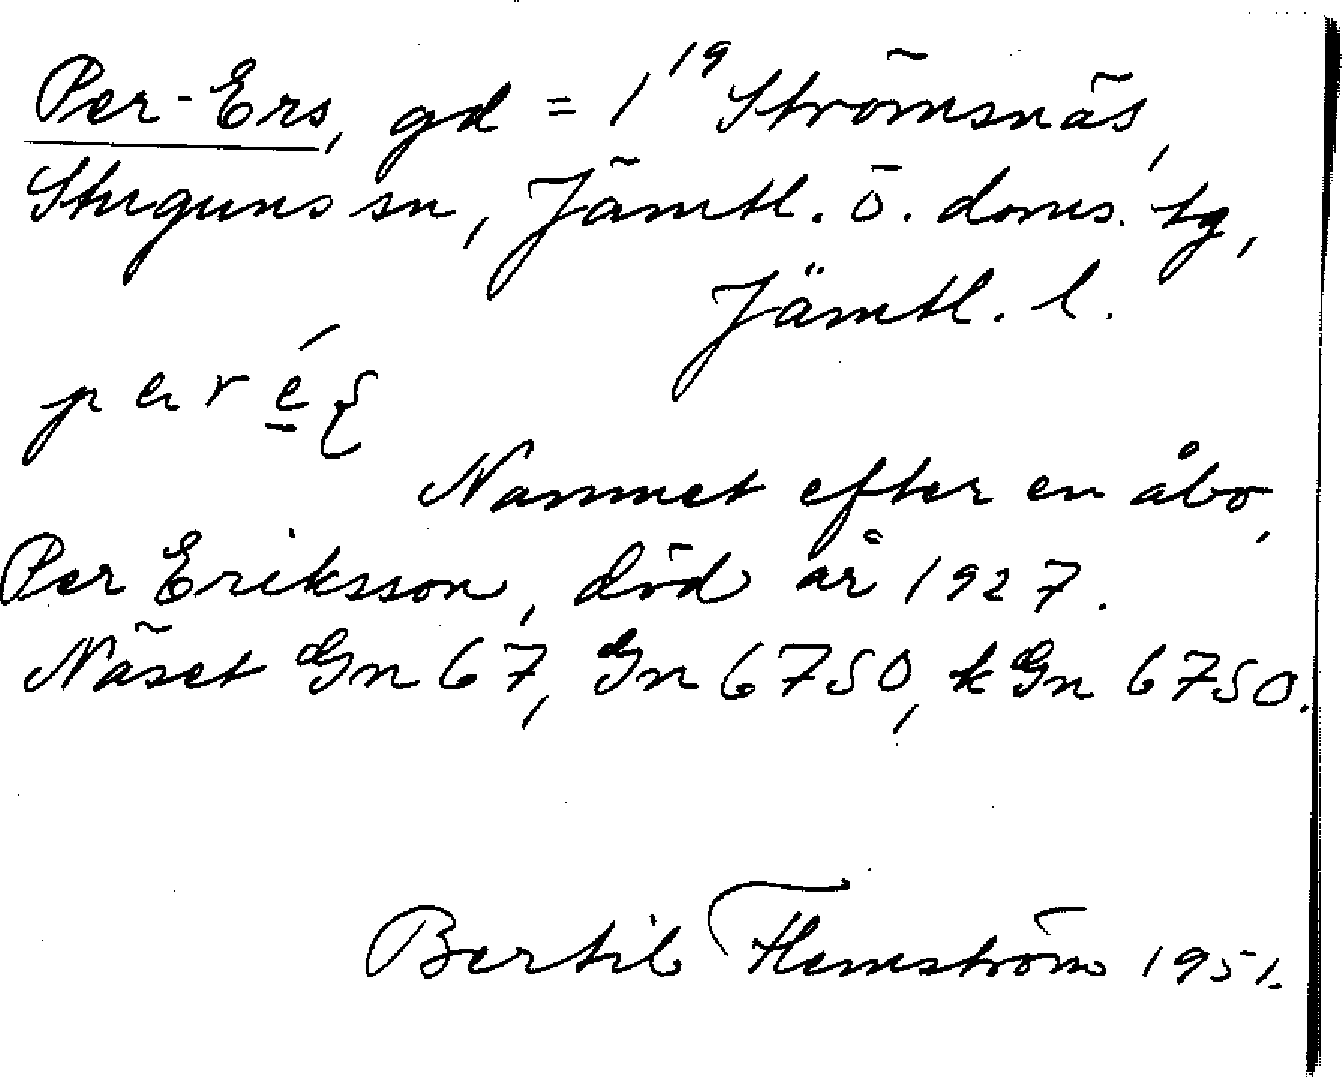 Per-Ers, gd = 1¹⁹ Strömsnäs,
Stuguns sn, Jämtl. ö. doms. tg,
Jämtl. l.
Namnet efter en åbo,
Per Eriksson, död år 1927.
Näset Gn 67, Gn 6750, k Gn 6750.
Bertil Flemström 1951.